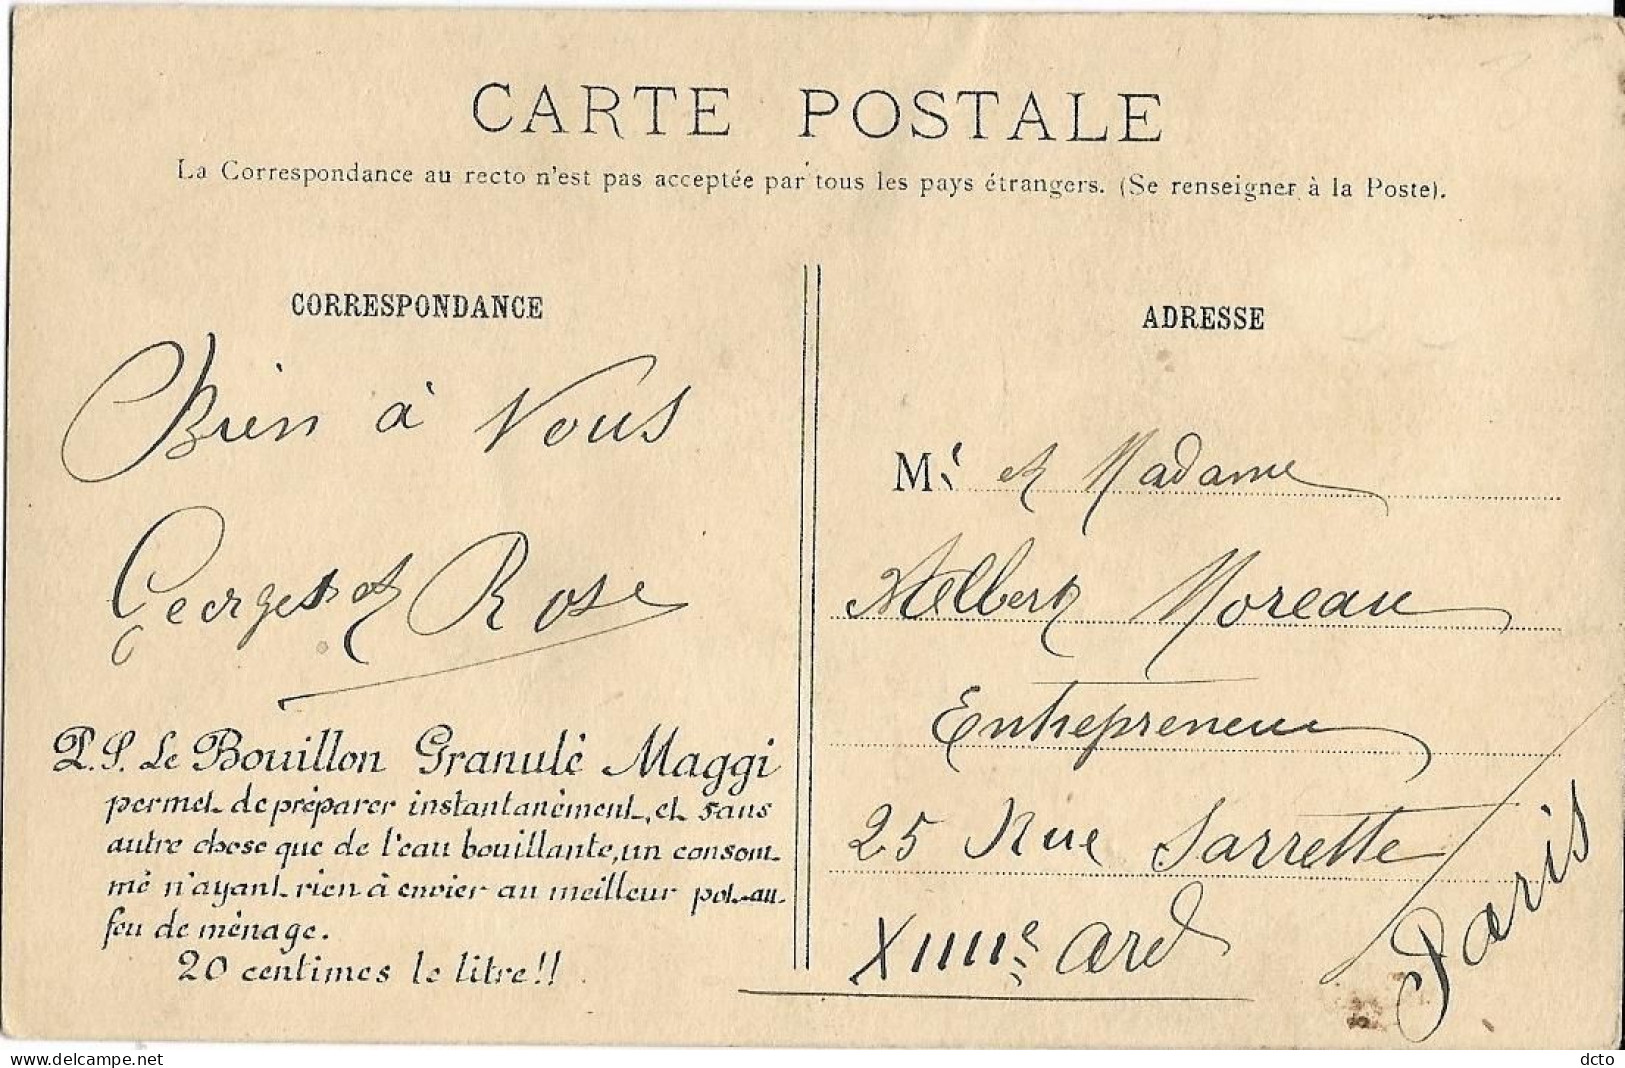 CARTE POSTALE
La Correspondance au recto n'est pas acceptée par tous les pays étrangers. (Se renseigner à la Poste).
CORRESPONDANCE
Bien à Vous
Georges et Rose
P.S. Le Bouillon Granulé Maggi
permet de préparer instantanément, et sans
autre chose que de l'eau bouillante, un consom-
mé n'ayant rien à envier au meilleur pot-au-
feu de ménage.
20 centimes le litre!!
ADRESSE
Mr et Madame
Albert Moreau
Entrepreneur
25 Rue Sarrette
XIIIIe ard
Paris
delcampe.net
dcto